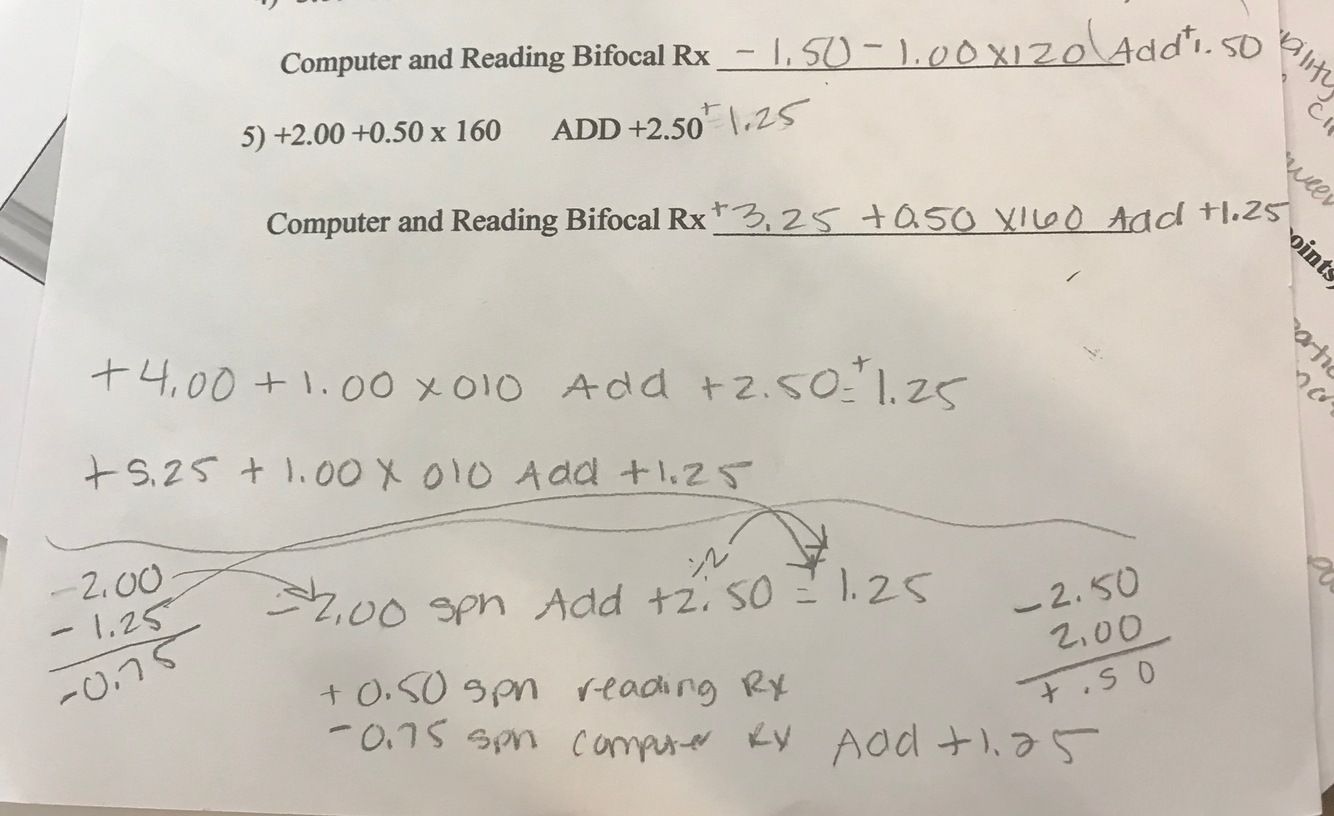 Computer and Reading Bifocal Rx -1.50 -1.00 x120 Add +1.50
5) +2.00 +0.50 x 160 ADD +2.50 +1.25
Computer and Reading Bifocal Rx +3.25 +0.50 x160 Add +1.25
oints
+4.00 +1.00 x 010 Add +2.50 = +1.25
+5.25 +1.00 x 010 Add +1.25
-2.00
- 1.25
-0.75
-2.00 sph Add +2.50 = +1.25
÷2
- 2.50
2.00
+ .50
+0.50 sph reading Rx
-0.75 sph computer Rx Add +1.25